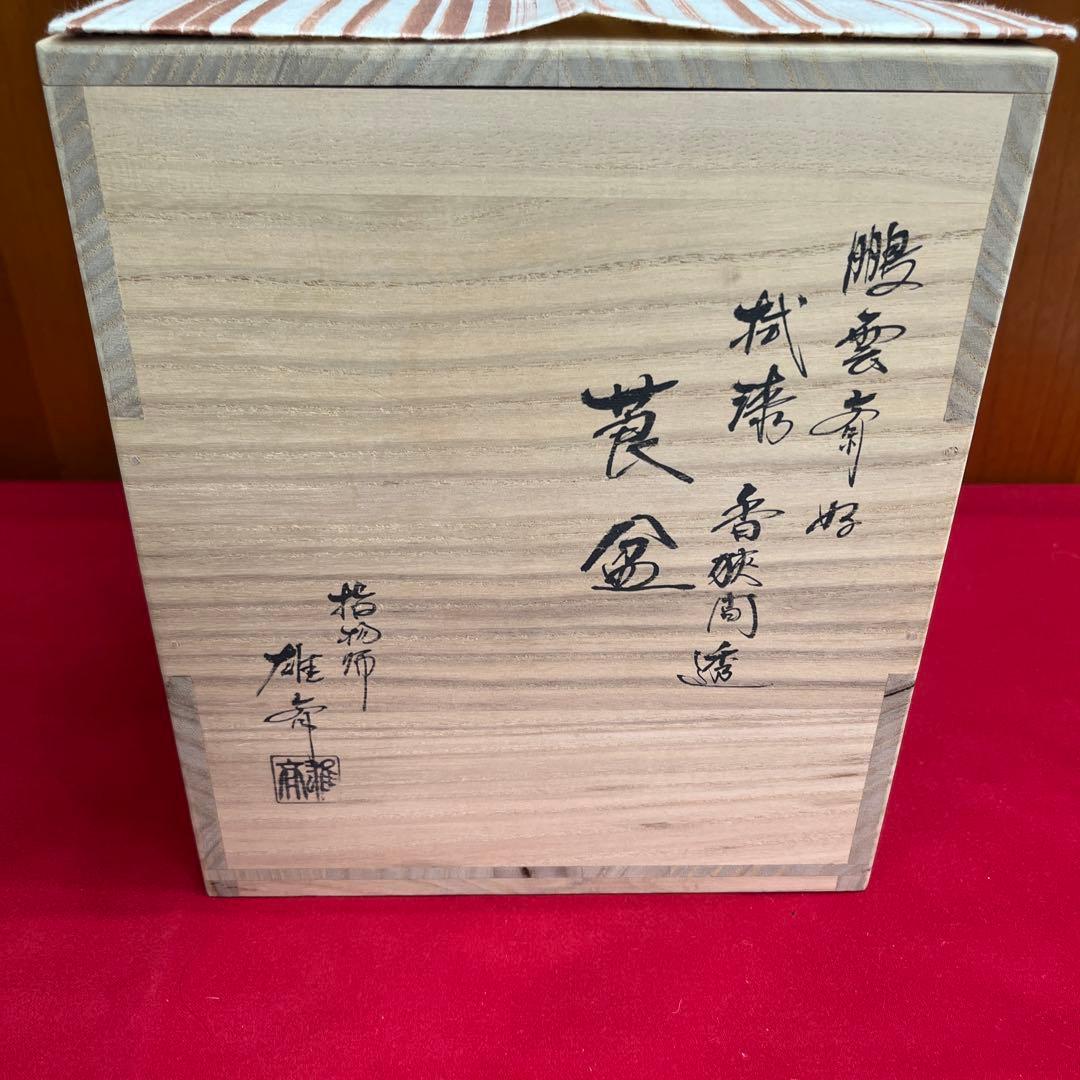 鵬雲斎好
拭漆 香狭間透
莨盆
指物師
雄斎
雄斎